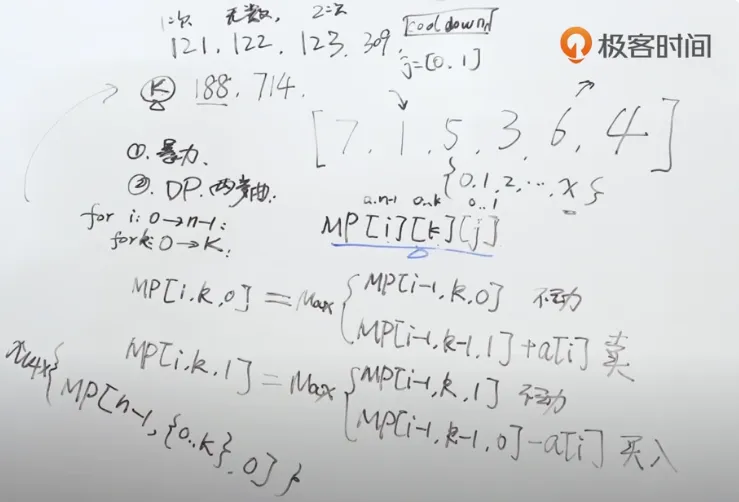 1次 无数次 2次
121, 122, 123, 309, cooldown
j=[0,1]
极客时间
K 188, 714.
[7, 1, 5, 3, 6, 4]
①. 暴力.
{0,1,2,…,X}
②. DP.
0..n-1 0..k 0..1
for i: 0→n-1:
MP[i][k][j]
for k: 0→K:
MP[i,k,0] = Max{MP[i-1,k,0] 不动
MP[i-1,k-1,1]+a[i] 卖
MP[i,k,1] = Max{MP[i-1,k,1] 不动
MP[i-1,k-1,0]-a[i] 买入
max{MP[n-1,{0..k},0]}